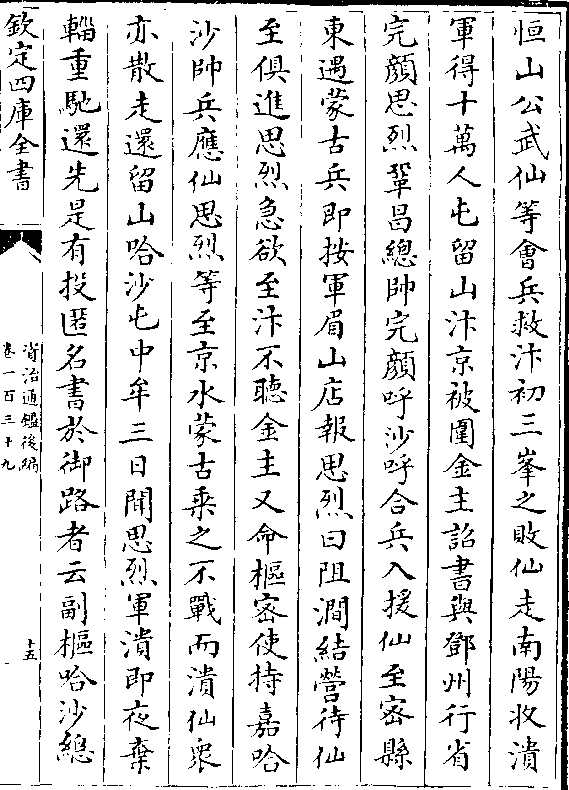 恒山公武仙等會兵救汴初三峯之敗仙走南陽收潰
軍得十萬人屯留山汴京被圍金主詔書與鄧州行省
完顔思烈鞏昌總帥完顔呼沙呼合兵入援仙至密縣
東遇蒙古兵即按軍眉山店報思烈曰阻澗結營待仙
至俱進思烈急欲至汴不聽金主又命樞密使持嘉哈
沙帥兵應仙思烈等至京水蒙古乘之不戰而潰仙衆
亦散走還留山哈沙屯中牟三日聞思烈軍潰即夜棄
輜重馳還先是有投匿名書於御路者云副樞哈沙總
欽定四庫全書
資治通鑑後編
卷一百三十九
十五